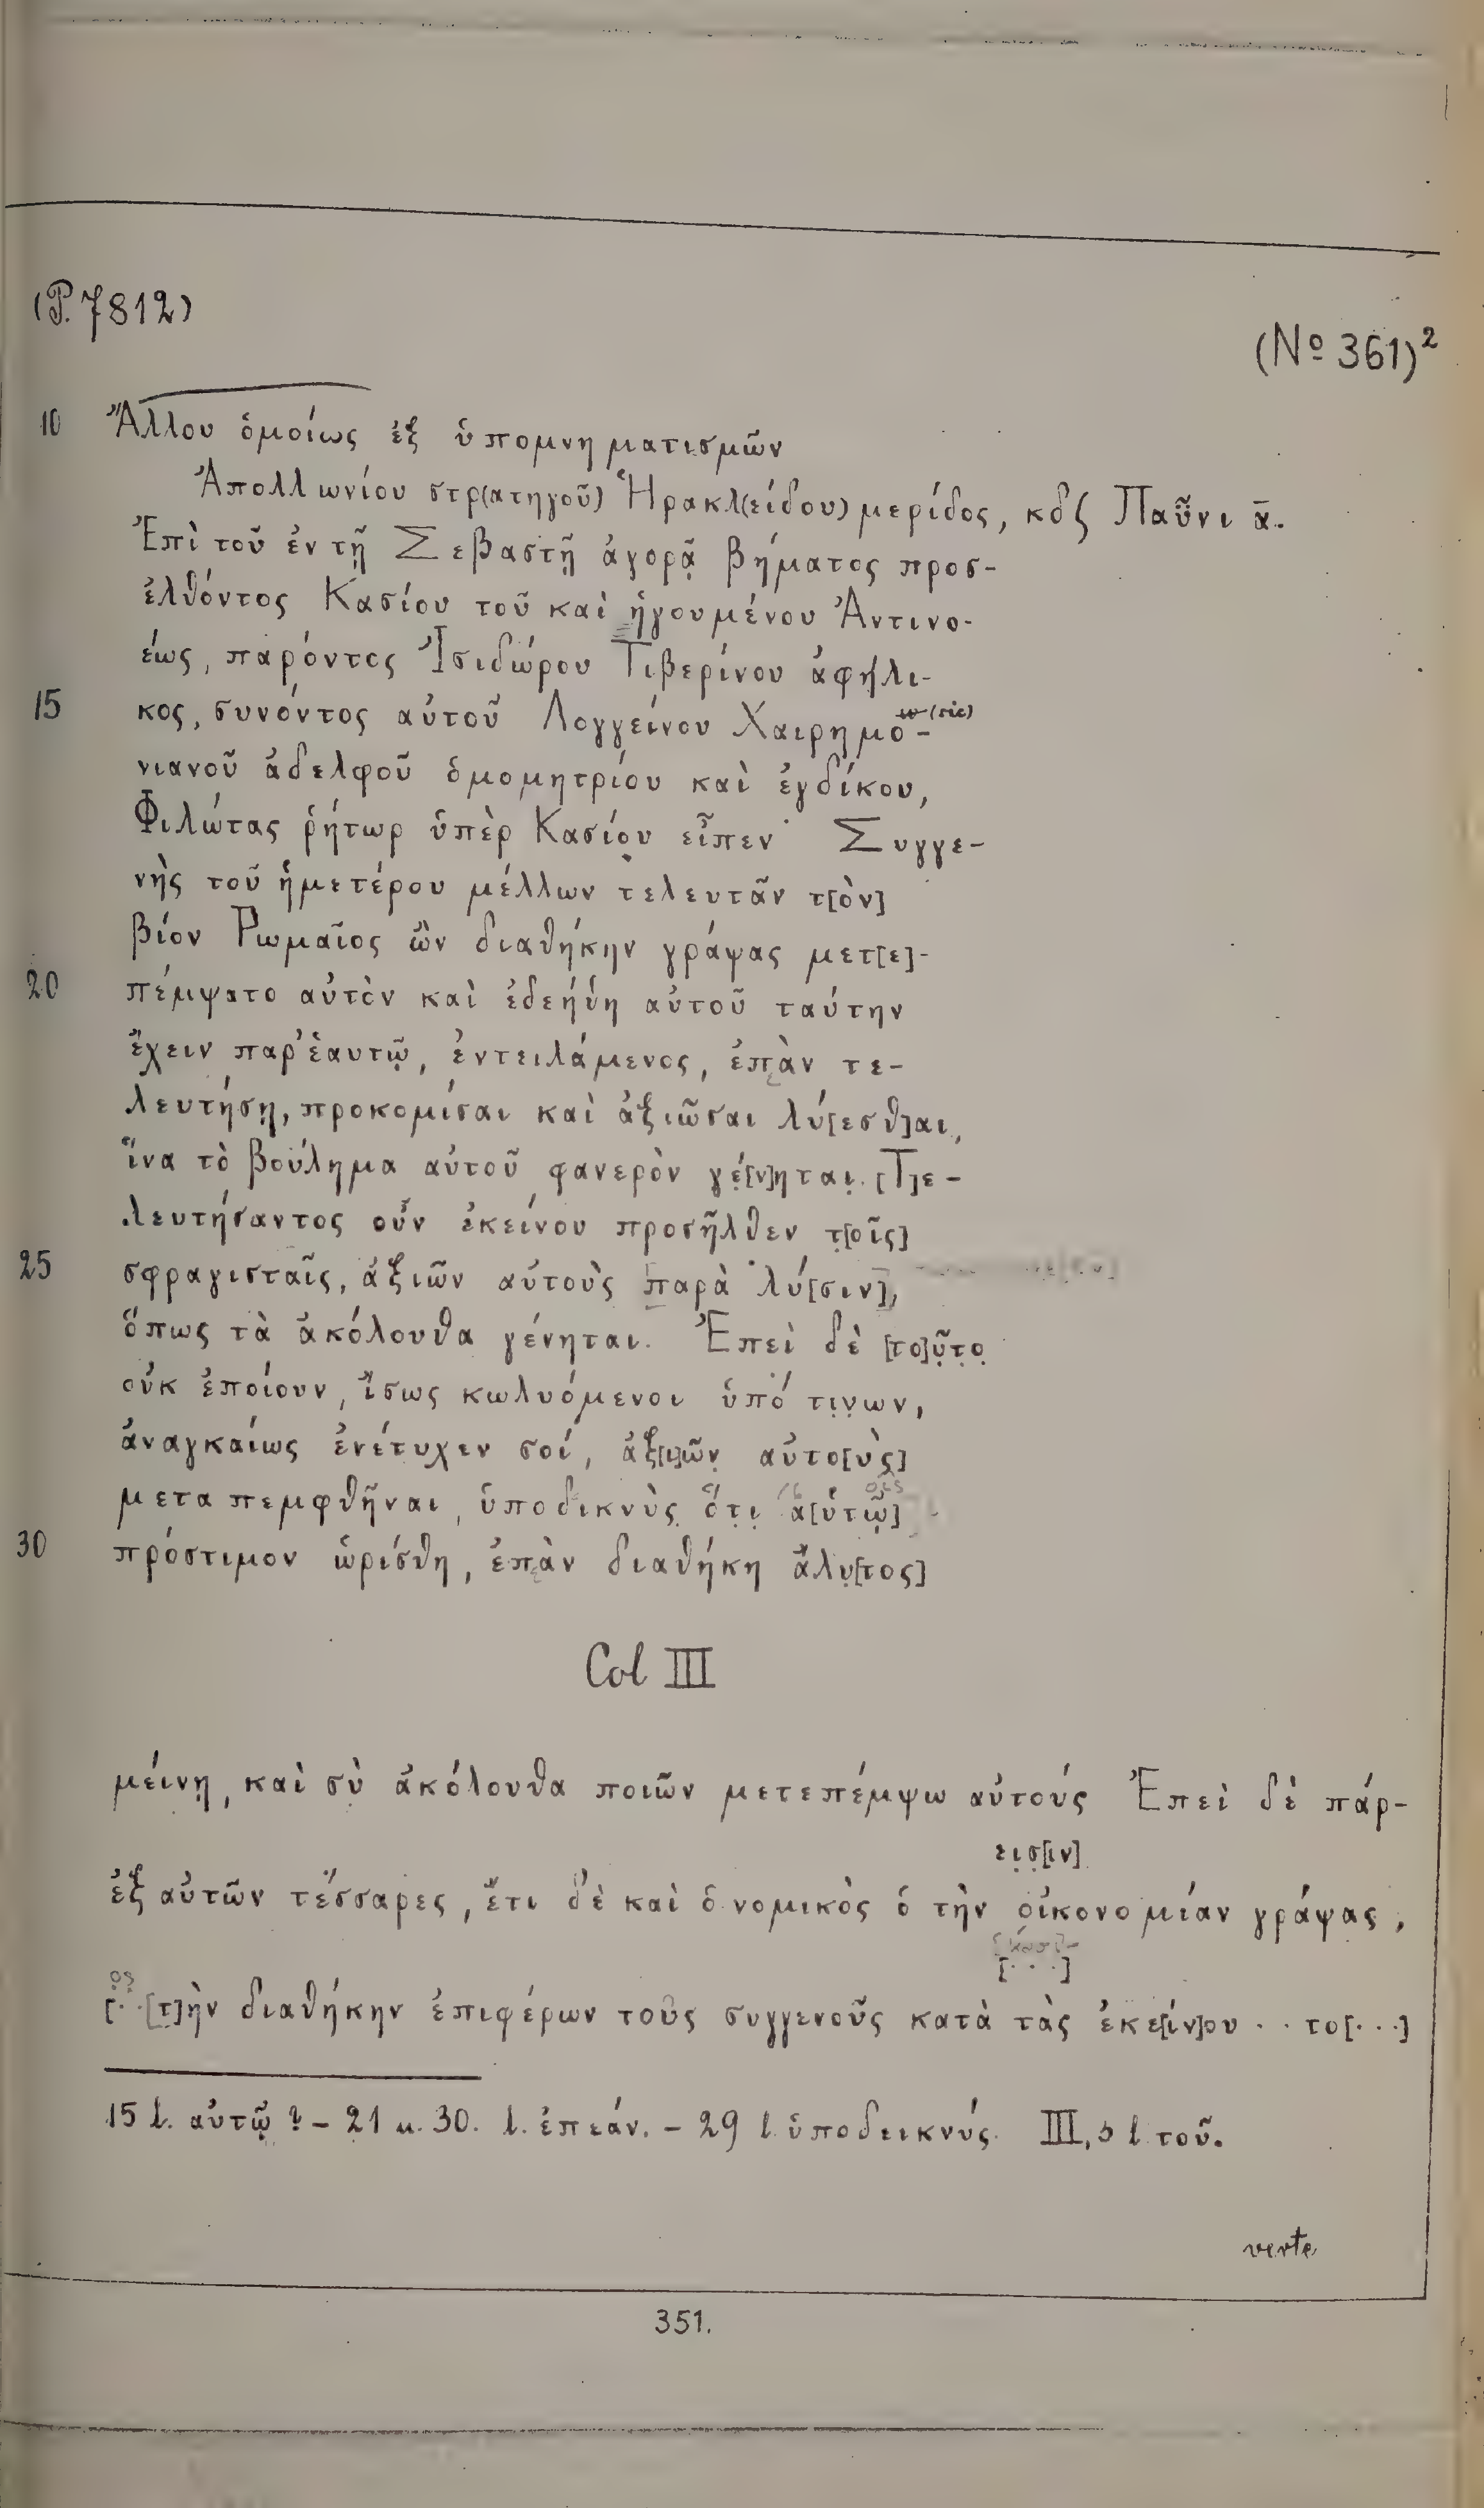 (P. 7812)
(Nº 361)²
10 Ἄλλου ὁμοίως ἐξ ὑπομνηματισμῶν
Ἀπολλωνίου στρ(ατηγοῦ) Ἡρακλ(είδου) μερίδος, κδζ Παῧνι ᾱ.
Ἐπὶ τοῦ ἐν τῇ Σεβαστῇ ἀγορᾷ βήματος προσ-
ἐλθόντος Κασίου τοῦ καὶ ἡγουμένου Ἀντινο-
έως, παρόντος Ἰσιδώρου Τιβερίνου ἀφήλι-
15 κος, συνόντος αὐτοῦ Λογγείνου Χαιρημο-
(sic)
νιανοῦ ἀδελφοῦ ὁμομητρίου καὶ ἐγδίκου,
Φιλώτας ῥήτωρ ὑπὲρ Κασίου εἶπεν· Συγγε-
νὴς τοῦ ἡμετέρου μέλλων τελευτᾶν τ[ὸν]
βίον Ῥωμαῖος ὢν διαθήκην γράψας μετ[ε]-
20 πέμψατο αὐτὸν καὶ ἐδεήθη αὐτοῦ ταύτην
ἔχειν παρ' ἑαυτῷ, ἐντειλάμενος, ἐπὰν τε-
λευτήσῃ, προκομίσαι καὶ ἀξιῶσαι λύ[εσθ]αι,
ἵνα τὸ βούλημα αὐτοῦ φανερὸν γέ[ν]ηται. [Τ]ε-
λευτήσαντος οὖν ἐκείνου προσῆλθεν τ[οῖς]
25 σφραγισταῖς, ἀξιῶν αὐτοὺς παρὰ λύ[σιν],
ὅπως τὰ ἀκόλουθα γένηται. Ἐπεὶ δὲ [το]ῦτο
οὐκ ἐποίουν, ἴσως κωλυόμενοι ὑπό τινων,
ἀναγκαίως ἐνέτυχεν σοί, ἀξ[ι]ῶν αὐτο[ὺς]
μεταπεμφθῆναι, ὑποδικνὺς ὅτι ἀ[ὐτῷ]
30 πρόστιμον ὡρίσθη, ἐπὰν διαθήκη ἄλυ[τος]
Col III
μείνῃ, καὶ σὺ ἀκόλουθα ποιῶν μετεπέμψω αὐτούς Ἐπεὶ δὲ πάρ-
εισ[ιν]
ἐξ αὐτῶν τέσσαρες, ἔτι δὲ καὶ ὁ νομικὸς ὁ τὴν οἰκονομίαν γράψας,
[...]
[..[τ]ὴν διαθήκην ἐπιφέρων τοὺς συγγενοῦς κατὰ τὰς ἐκε[ίν]ου . . το[...]
15 l. αὐτῷ? – 21 u. 30. l. ἐπεάν. – 29 l. ὑποδεικνύς. III, 3 l. τοῦ.
verte
351.